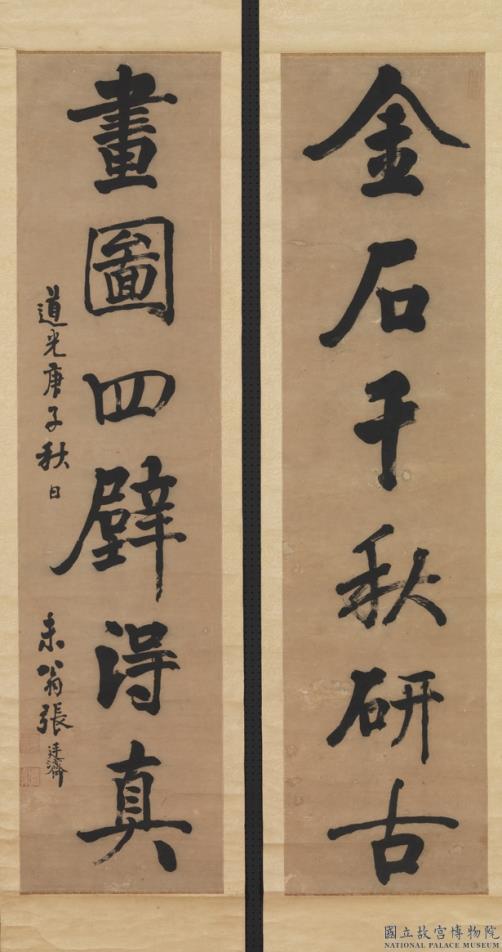 金石千秋研古
畫圖四壁得真
道光庚子秋日
未翁張廷濟
國立故宮博物院
NATIONAL PALACE MUSEUM